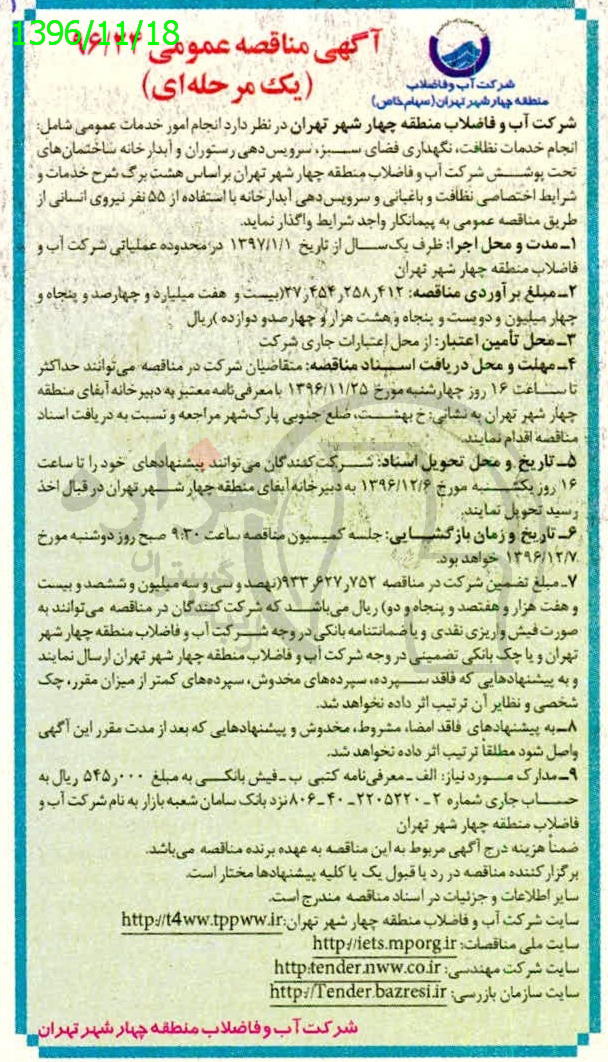 1396/11/18
آگهی مناقصه عمومی ۹۶/۲۲
(یک مرحله‌ای)
شرکت آب و فاضلاب
منطقه چهار شهر تهران (سهام خاص)
شرکت آب و فاضلاب منطقه چهار شهر تهران در نظر دارد انجام امور خدمات عمومی شامل:
انجام خدمات نظافت، نگهداری فضای سبز، سرویس‌دهی رستوران و آبدارخانه ساختمان‌های
تحت پوشش شرکت آب و فاضلاب منطقه چهار شهر تهران براساس هشت برگ شرح خدمات و
شرایط اختصاصی نظافت و باغبانی و سرویس‌دهی آبدارخانه با استفاده از ۵۵ نفر نیروی انسانی از
طریق مناقصه عمومی به پیمانکار واجد شرایط واگذار نماید.
۱ـ مدت و محل اجرا: ظرف یک‌سال از تاریخ ۱۳۹۷/۱/۱ در محدوده عملیاتی شرکت آب و
فاضلاب منطقه چهار شهر تهران
۲ـ مبلغ برآوردی مناقصه: ۳۷٫۴۵۴٫۲۵۸٫۴۱۲(بیست و هفت میلیارد و چهارصد و پنجاه و
چهار میلیون و دویست و پنجاه و هشت هزار و چهارصدو دوازده )ریال
۳ـ محل تأمین اعتبار: از محل اعتبارات جاری شرکت
۴ـ مهلت و محل دریافت اسناد مناقصه: متقاضیان شرکت در مناقصه می‌توانند حداکثر
تا ساعت ۱۶ روز چهارشنبه مورخ ۱۳۹۶/۱۱/۲۵ با معرفی‌نامه معتبر به دبیرخانه آبفای منطقه
چهار شهر تهران به نشانی: خ بهشت، ضلع جنوبی پارک‌شهر مراجعه و نسبت به دریافت اسناد
مناقصه اقدام نمایند.
۵ـ تاریخ و محل تحویل اسناد: شرکت‌کنندگان می‌توانند پیشنهادهای خود را تا ساعت
۱۶ روز یکشنبه مورخ ۱۳۹۶/۱۲/۶ به دبیرخانه آبفای منطقه چهار شهر تهران در قبال اخذ
رسید تحویل نمایند.
۶ـ تاریخ و زمان بازگشایی: جلسه کمیسیون مناقصه ساعت ۹:۳۰ صبح روز دوشنبه مورخ
۱۳۹۶/۱۲/۷ خواهد بود.
۷ـ مبلغ تضمین شرکت در مناقصه ۹۳۳٫۶۲۷٫۷۵۲(نهصد و سی و سه میلیون و ششصد و بیست
و هفت هزار و هفتصد و پنجاه و دو) ریال می‌باشد که شرکت کنندگان در مناقصه می‌توانند به
صورت فیش واریزی نقدی و یا ضمانتنامه بانکی در وجه شرکت آب و فاضلاب منطقه چهار شهر
تهران و یا چک بانکی تضمینی در وجه شرکت آب و فاضلاب منطقه چهار شهر تهران ارسال نمایند
و به پیشنهادهایی که فاقد سپرده، سپرده‌های مخدوش، سپرده‌های کمتر از میزان مقرر، چک
شخصی و نظایر آن ترتیب اثر داده نخواهد شد.
۸ـ به پیشنهادهای فاقد امضا، مشروط، مخدوش و پیشنهادهایی که بعد از مدت مقرر این آگهی
واصل شود مطلقاً ترتیب اثر داده نخواهد شد.
۹ـ مدارک مورد نیاز: الف ـ معرفی‌نامه کتبی ب ـ فیش بانکی به مبلغ ۵۴۵٫۰۰۰ ریال به
حساب جاری شماره ۲ ـ ۲۲۰۵۳۲۰ ـ ۴۰ ـ ۸۰۶ نزد بانک سامان شعبه بازار به نام شرکت آب و
فاضلاب منطقه چهار شهر تهران
ضمناً هزینه درج آگهی مربوط به این مناقصه به عهده برنده مناقصه می‌باشد.
برگزارکننده مناقصه در رد یا قبول یک یا کلیه پیشنهادها مختار است.
سایر اطلاعات و جزئیات در اسناد مناقصه مندرج است.
سایت شرکت آب و فاضلاب منطقه چهار شهر تهران: http://t4ww.tppww.ir
سایت ملی مناقصات: http://iets.mporg.ir
سایت شرکت مهندسی: http:tender.nww.co.ir
سایت سازمان بازرسی: http://Tender.bazresi.ir
شرکت آب و فاضلاب منطقه چهار شهر تهران